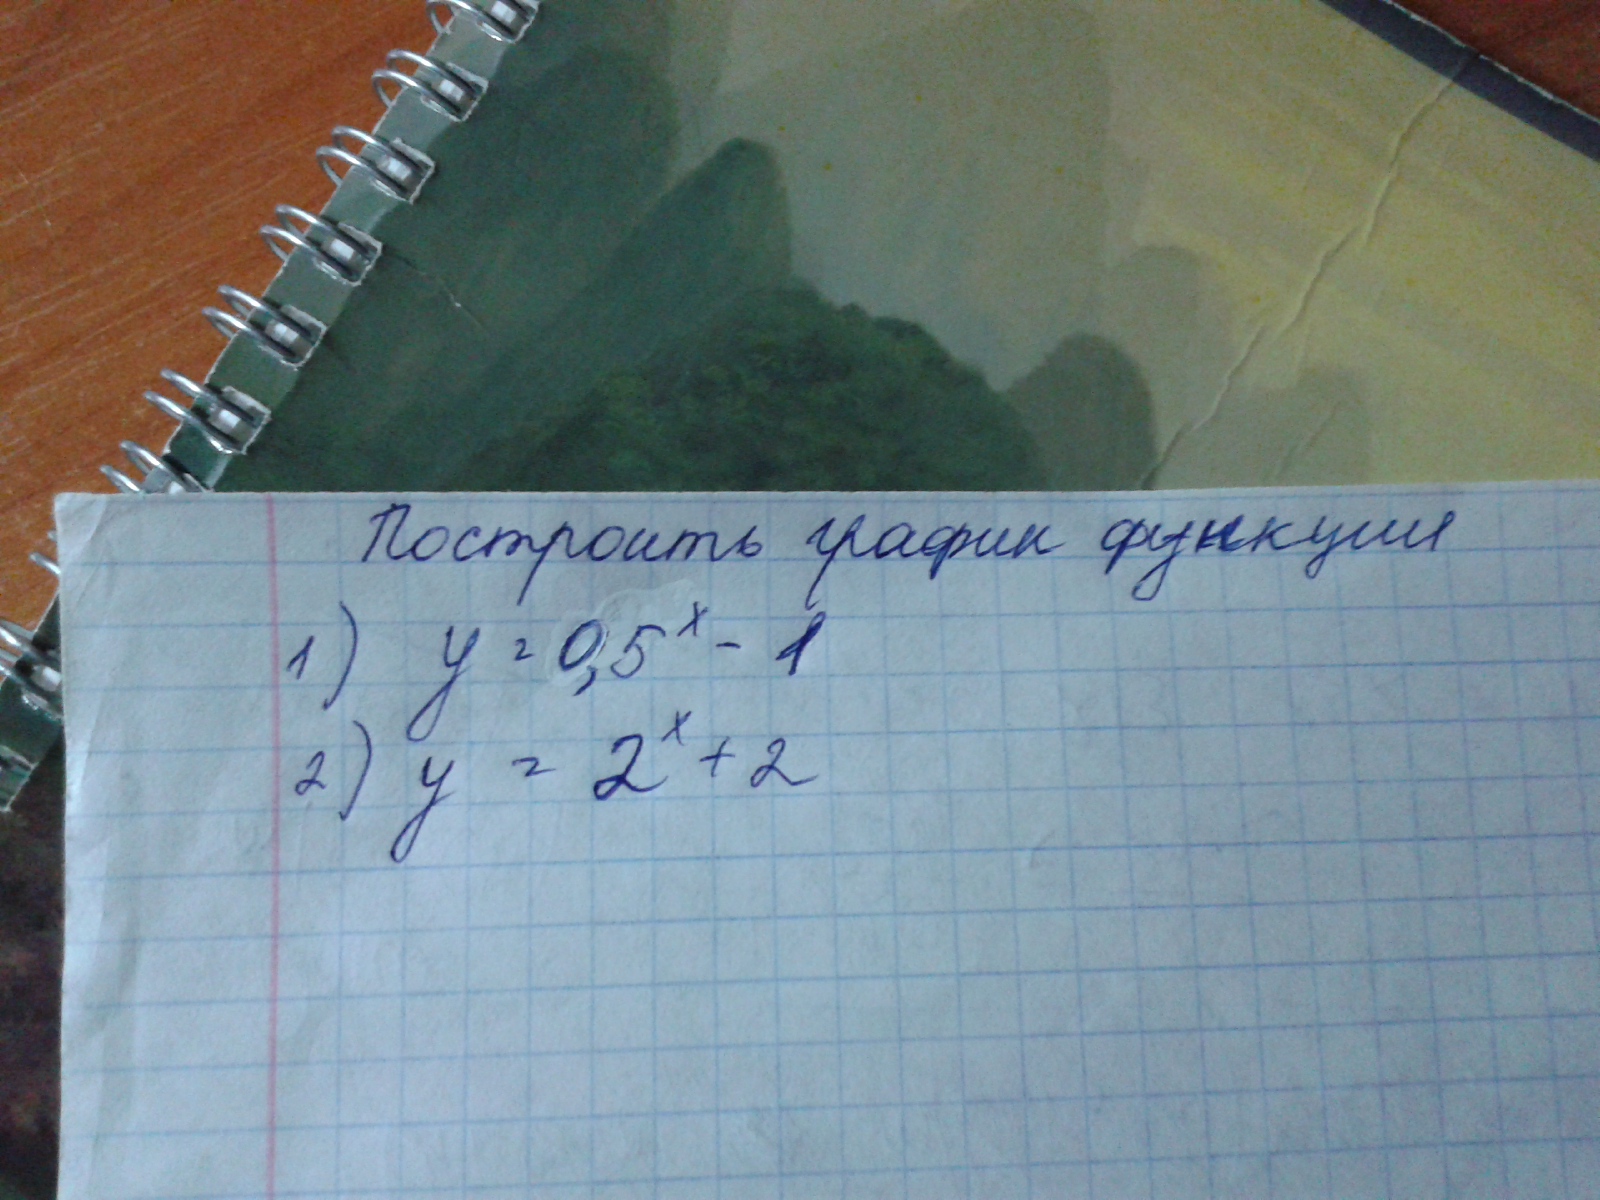 Построить график функции
1) y = 0,5^x - 1
2) y = 2^x + 2